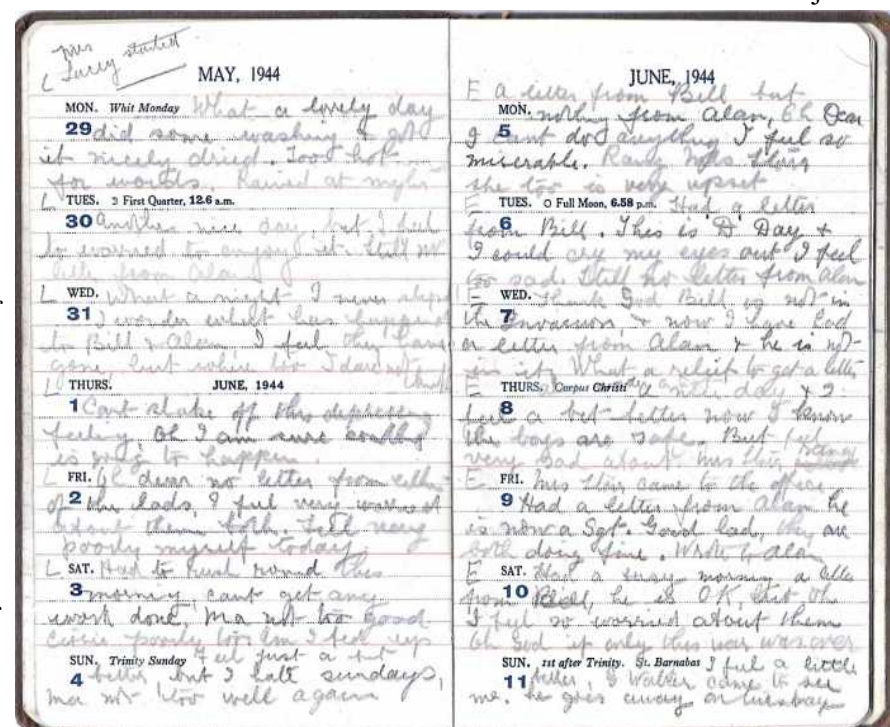 Mrs
Lurey started
MAY, 1944
MON. Whit Monday What a lovely day
29 did some washing & got
it nicely dried. Too hot
for words Rained at night
L TUES. First Quarter, 12.6 a.m.
30 Another nice day, but I feel
to worried to enjoy it. Still no
letter from Alan
L WED. What a night I never slept
31 I wonder what has happened
to Bill & Alan. I feel they have
gone, but where too I dare not
L THURS. JUNE, 1944
1 Cant shake off this depressing
feeling, oh I am sure
is going to happen.
L FRI. Oh dear no letter from either
2 of the lads, I feel very worried
about them both. Felt very
poorly myself today.
L SAT. Had to rush round this
3 morning, cant get any
work done, Ma not too good
Cissie poorly too. Am I fed up
SUN. Trinity Sunday Feel just a bit
4 better but I hate sundays,
Ma not too well again
JUNE, 1944
E A letter from Bill but
MON. nothing from Alan, Oh Dear
5 I cant do anything I feel so
miserable. Rang Mrs
she too is very upset
E TUES. Full Moon, 6.58 p.m. Had a letter
6 from Bill. This is D Day &
I could cry my eyes out I feel
too sad. Still no letter from Alan
E WED. Thank God Bill is not in
7 the Invasion, & now I have had
a letter from Alan & he is not
in it. What a relief to get a letter
E THURS. Corpus Christi a nice day & I
8 feel a bit better now I know
the boys are safe. But feel
very sad about Mrs
E FRI. Mrs came to the office
9 Had a letter from Alan he
is now a Sgt. Good lad, they are
both doing fine. Wrote to Alan
E SAT. Had a busy morning a letter
10 from Bill, he is OK, but Oh
I feel so worried about them
Oh God if only this war was over
SUN. 1st after Trinity. St. Barnabas I feel a little
11 better, G Walker came to see
me. he goes away on tuesday